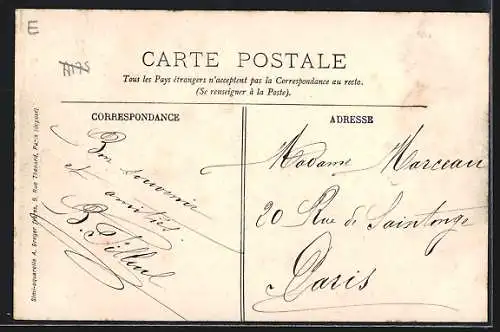 E
CARTE POSTALE
Tous les Pays étrangers n'acceptent pas la Correspondance au recto.
(Se renseigner à la Poste).
CORRESPONDANCE
ADRESSE
Bon souvenir
et
amitiés
Madame Marceau
20 Rue de Saintonge
Paris
Simili-aquarelle A. Breger frères, 9, Rue Thénard, Paris (déposé)